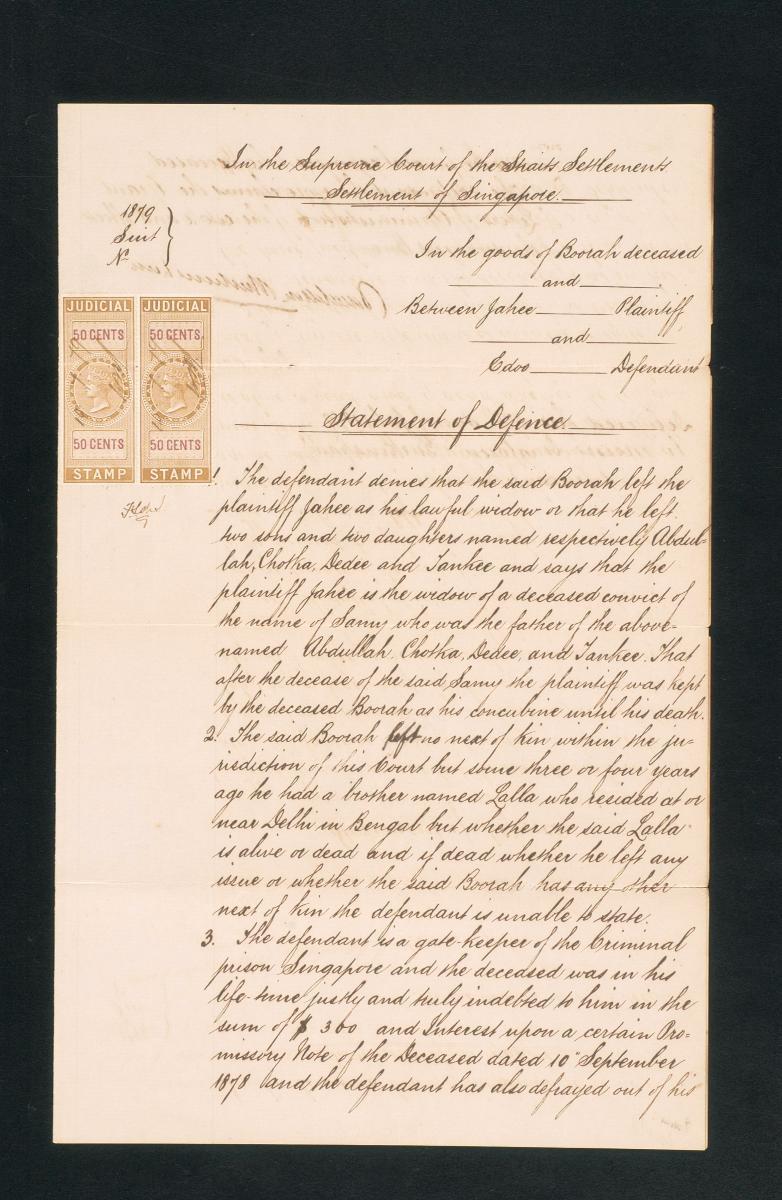 In the Supreme Court of the Straits Settlements
Settlement of Singapore.
1879
Suit
No
In the goods of Boorah deceased
and
Between Jahee Plaintiff
and
Edoo Defendant
JUDICIAL JUDICIAL
50 CENTS 50 CENTS
50 CENTS 50 CENTS
STAMP STAMP
Statement of Defence.
1 The defendant denies that the said Boorah left the
plaintiff Jahee as his lawful widow or that he left
two sons and two daughters named respectively Abdul-
lah, Chotka, Dedee and Tankee and says that the
plaintiff Jahee is the widow of a deceased convict of
the name of Samy who was the father of the above-
named Abdullah, Chotka, Dedee, and Tankee. That
after the decease of the said Samy the plaintiff was kept
by the deceased Boorah as his concubine until his death.
2. The said Boorah left no next of kin within the ju-
risdiction of this Court but some three or four years
ago he had a brother named Lalla who resided at or
near Delhi in Bengal but whether the said Lalla
is alive or dead and if dead whether he left any
issue or whether the said Boorah has any other
next of kin the defendant is unable to state.
3. The defendant is a gate-keeper of the Criminal
prison Singapore and the deceased was in his
life-time justly and truly indebted to him in the
sum of $ 300 and Interest upon a certain Pro-
missory Note of the Deceased dated 10 September
1878 and the defendant has also defrayed out of his